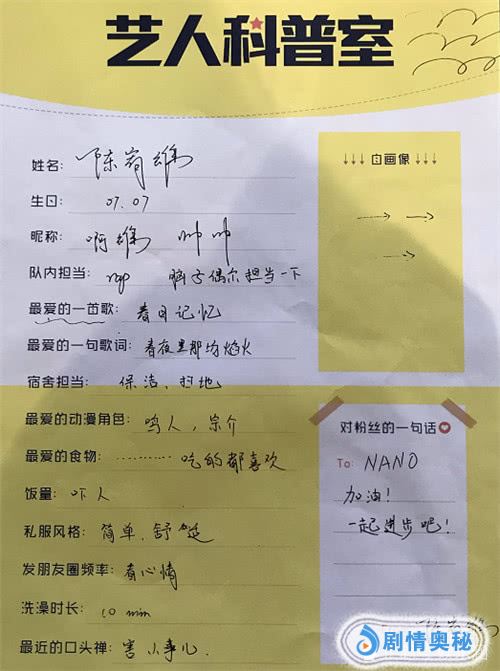 艺人科普室
姓名: 陈
生日: 07.07
昵称: 啊雄 帅帅
队内担当: rap 脑子偶尔担当一下
最爱的一首歌: 春日记忆
最爱的一句歌词: 春夜里那场焰火
宿舍担当: 保洁、扫地
最爱的动漫角色: 鸣人，宗介
最爱的食物: ………… 吃的都喜欢
饭量: 吓人
私服风格: 简单、舒适
发朋友圈频率: 看心情
洗澡时长: 10 min
最近的口头禅: 害 小事儿.
↓↓↓ 自画像 ↓↓↓
对粉丝的一句话
To: NANO
加油!
一起进步吧!
剧情奥秘